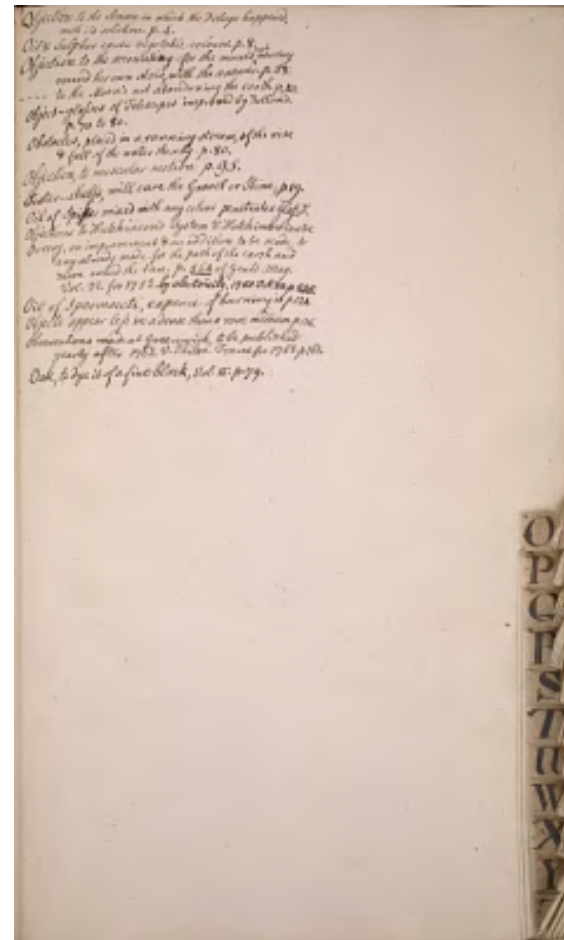 Objection to the Season in which the Deluge happened,
with its solution. p. 4.
Oil & Sulphur vegetable colours. p. 8.
Objection to the the moon's
round her own Axis, with the answer. p. 58.
---- to the Moon's not abandoning the earth. p.
Object-glasses of Telescopes improved by Dollond.
p. 70 to 80.
Obstacles, placed in a running stream, of the rise
& fall of the water thereby. p. 80.
Objection, to muscular motion. p. 95.
Oyster-shells, will cure the Gravel or Stone, p. 89.
Oil of Spike mixed with any colour penetrates Glass.
Objections to Hutchinson's System
Orrery, an improvement & an addition to be made, to
any already made, for the path of the earth and
moon round the Sun, p. of Gentl. Mag.
Vol. 22. for 1752. by electricity,
Oil of Spermaceti, expence of burning it p. 122.
Objects appear less in a dense than a rare medium p.
Observations made at Greenwich, to be published
yearly after 1762. V. Philos. Transac. for 1768. p.
Oak, to dye it of a fine black, Vol. II. p. 79.
O
P
Q
R
S
T
U
W
X
Y